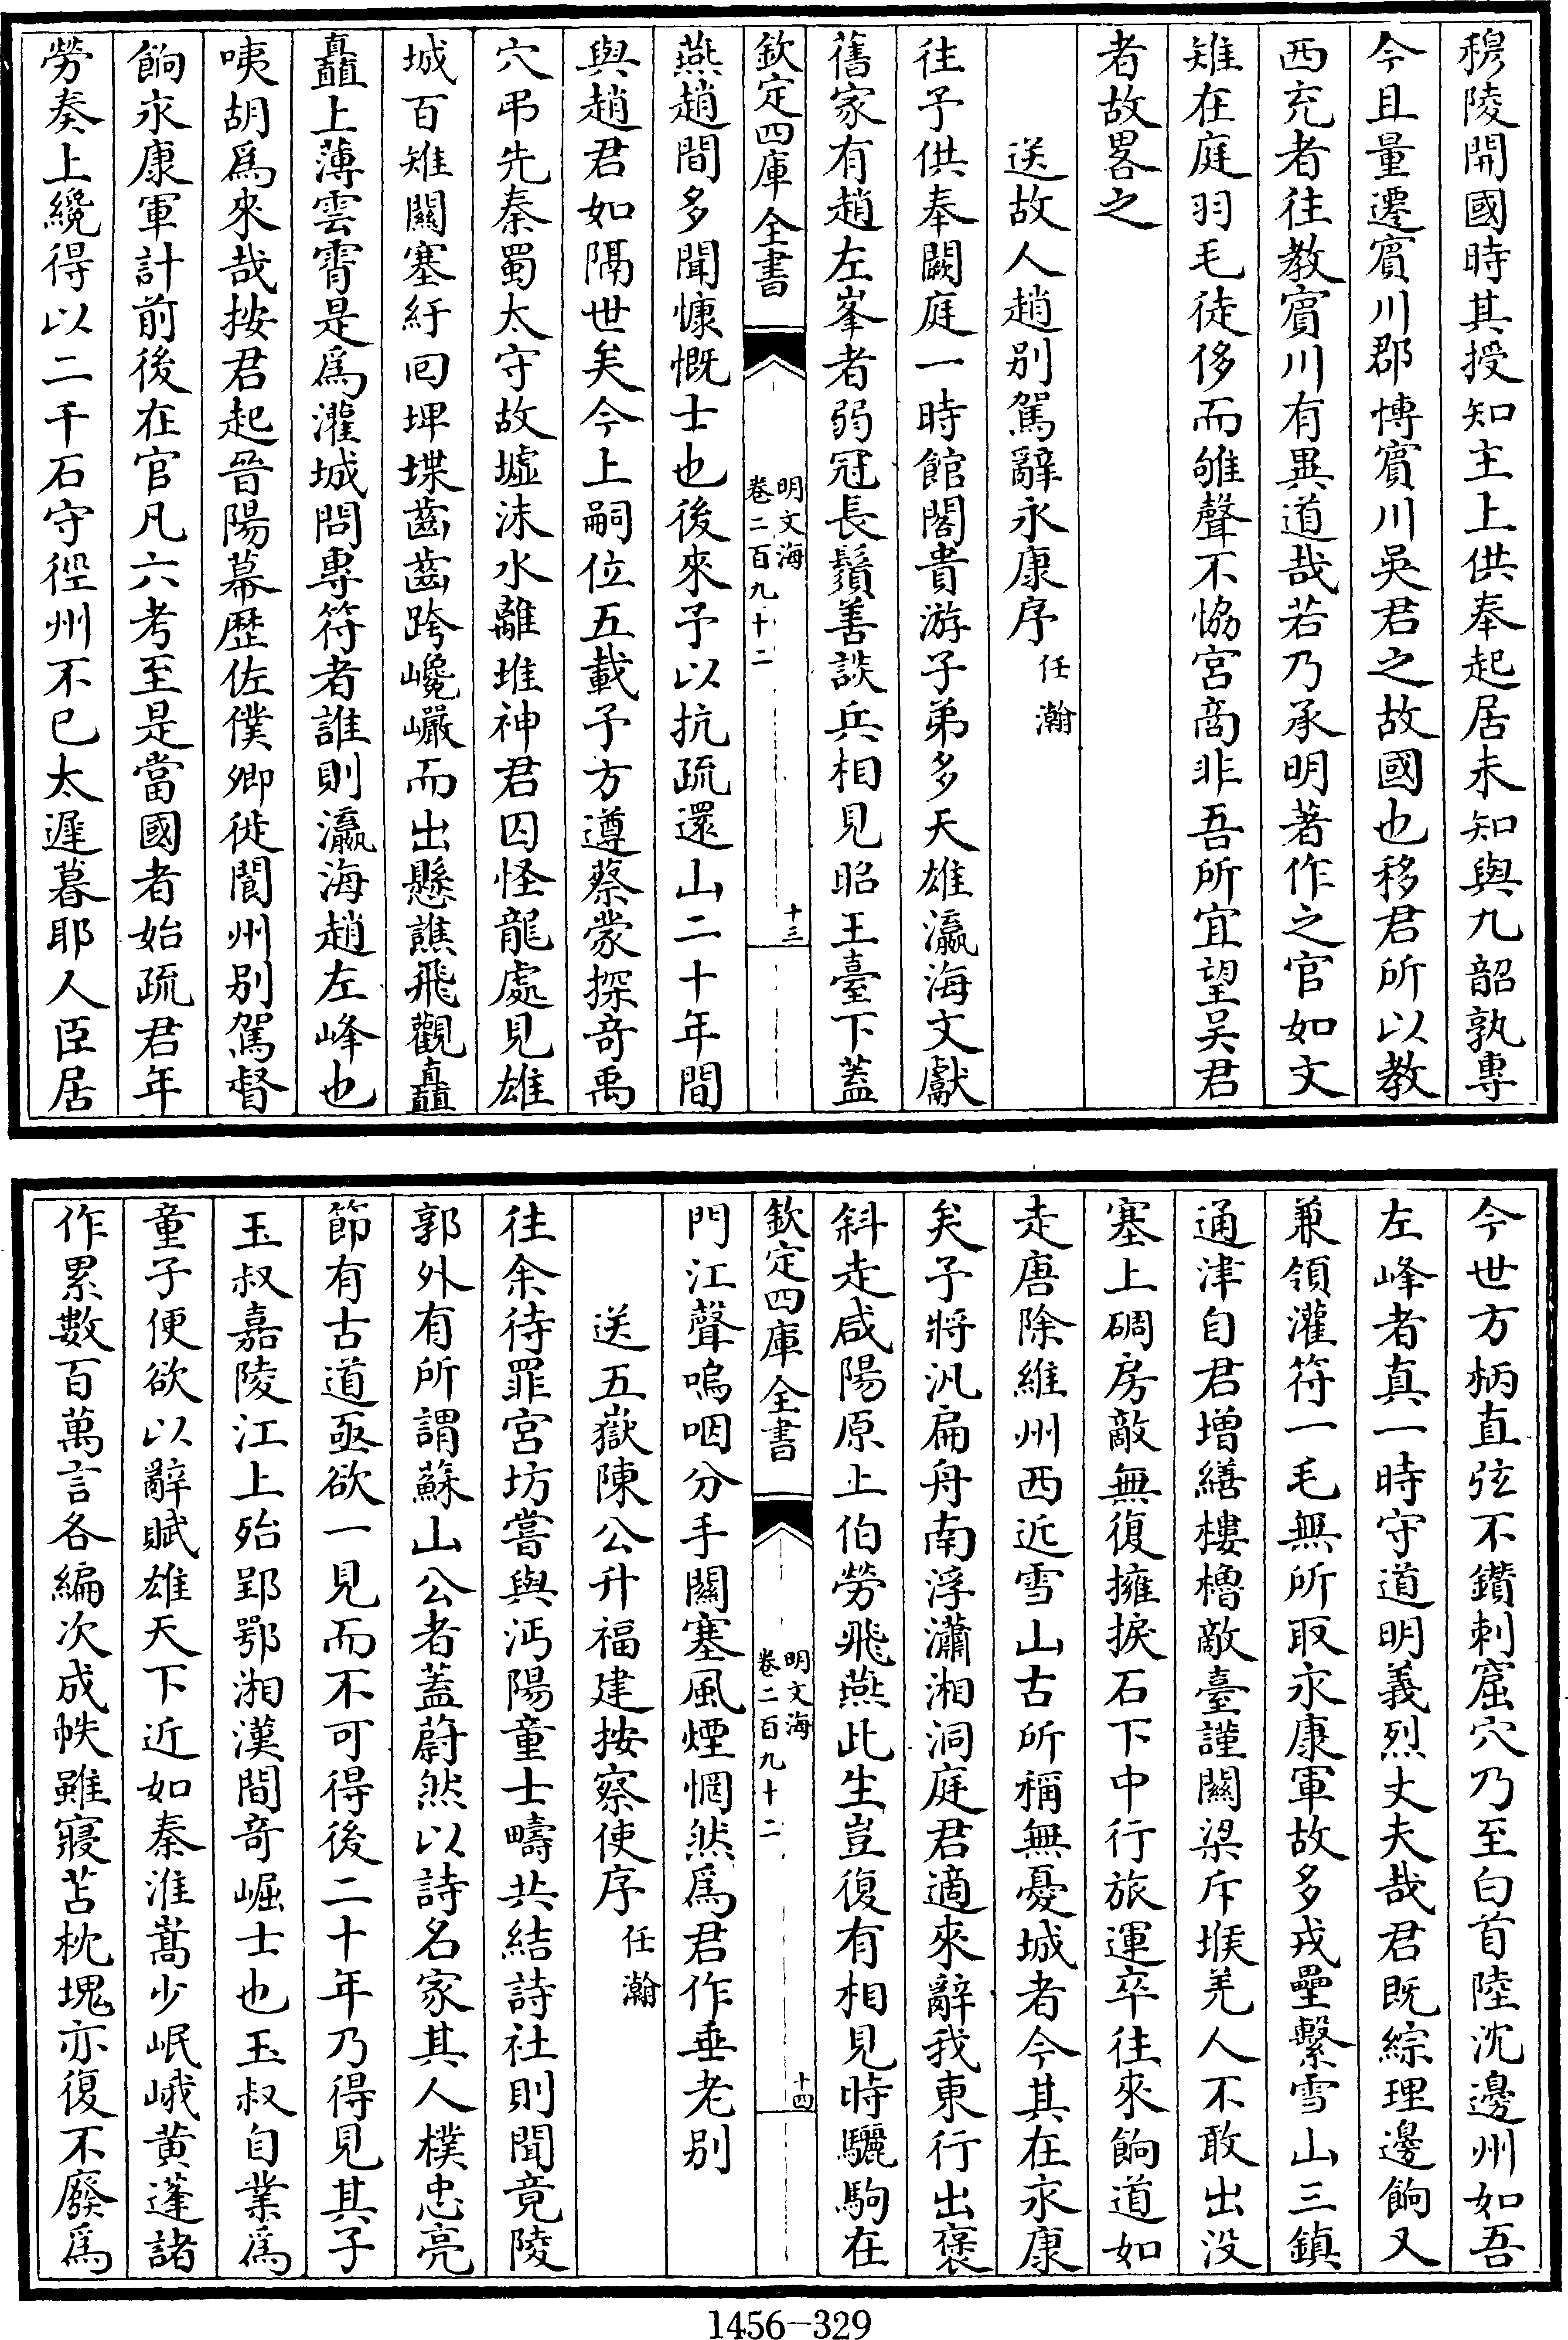 穆陵開國時其授知主上供奉起居未知與九韶孰專
今且量遷賓川郡博賓川吳君之故國也移君所以教
西充者往教賓川有異道哉若乃承明著作之官如文
雉在庭羽毛徒侈而雊聲不恊宮商非吾所宜望吴君
者故畧之
送故人趙别駕辭永康序 任瀚
往予供奉闕庭一時館閣貴游子弟多天雄瀛海文獻
舊家有趙左峯者弱冠長鬚善談兵相見昭王臺下蓋
欽定四庫全書 明文海 卷二百九十二 十三
燕趙間多聞慷慨士也後來予以抗疏還山二十年間
與趙君如隔世矣今上嗣位五載予方遵蔡蒙探竒禹
穴弔先秦蜀太守故墟沫水離堆神君囚怪龍處見雄
城百雉關塞紆回埤堞齒齒跨巉巖而出懸譙飛觀矗
矗上薄雲霄是為灌城問專符者誰則瀛海趙左峰也
咦胡為來哉按君起晉陽幕歴佐僕卿徙閬州别駕督
餉永康軍計前後在官凡六考至是當國者始疏君年
勞奏上纔得以二千石守徑州不已太遲暮耶人臣居
今世方柄直弦不鑽刺窟穴乃至白首陸沈邊州如吾
左峰者真一時守道明義烈丈夫哉君既綜理邊餉又
兼領灌符一毛無所取永康軍故多戎壘繫雪山三鎮
通津自君增繕樓櫓敵臺謹關梁斥堠羌人不敢出没
塞上碉房敵無復擁捩石下中行旅運卒往來餉道如
走唐除維州西近雪山古所稱無憂城者今其在永康
矣予將汎扁舟南浮瀟湘洞庭君適來辭我東行出褒
斜走咸陽原上伯勞飛燕此生豈復有相見時驪駒在
欽定四庫全書 明文海 卷二百九十二 十四
門江聲嗚咽分手關塞風煙惘然為君作垂老别
送五嶽陳公升福建按察使序 任瀚
往余待罪宮坊嘗與沔陽童士疇共結詩社則聞竟陵
郭外有所謂蘇山公者蓋蔚然以詩名家其人樸忠亮
節有古道亟欲一見而不可得後二十年乃得見其子
玉叔嘉陵江上殆郢鄂湘漢間竒崛士也玉叔自業為
童子便欲以辭賦雄天下近如秦淮嵩少岷峨黄蓬諸
作累數百萬言各編次成帙雖寢苫枕塊亦復不廢為
1456－329